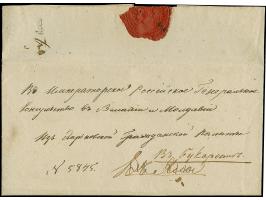 Въ Императорское Россiйское Генеральное
Консульство въ Валахiи и Молдавiи
Изъ Харьковской Гражданской Палаты
Въ Букарестъ
№ 5845.